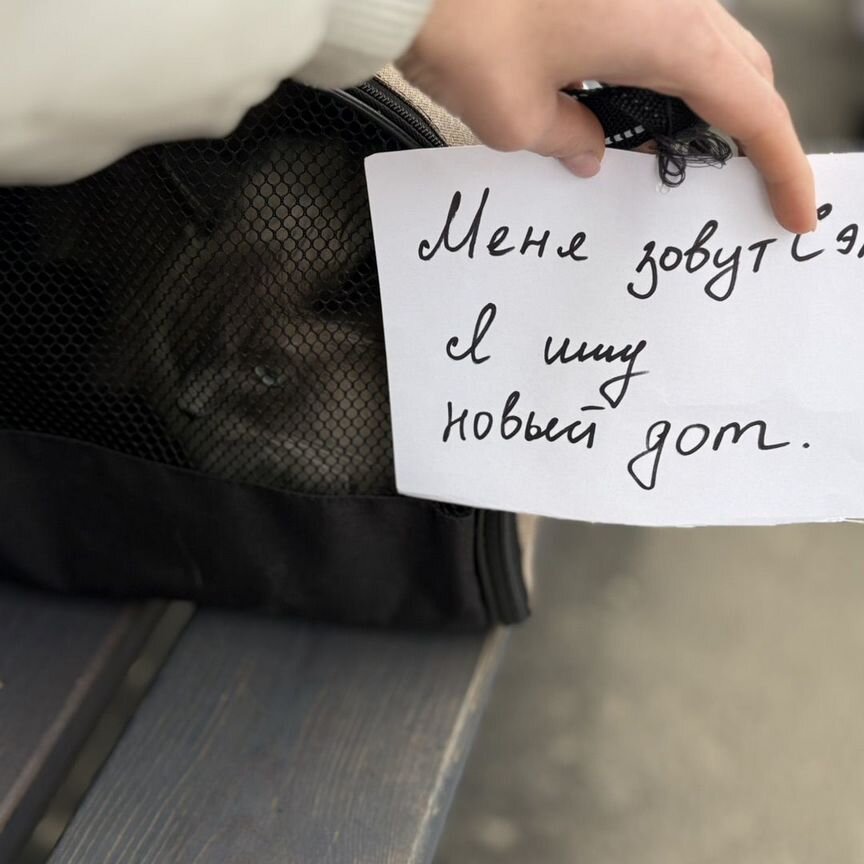 Меня зовут
Я ищу
новый дом.